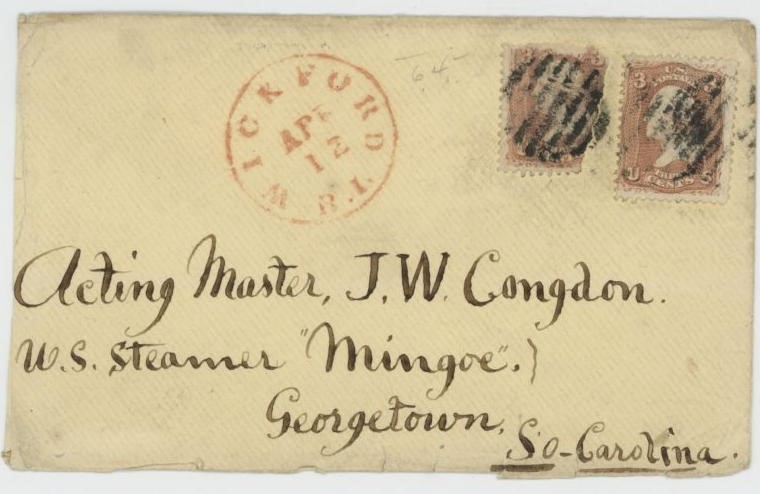 WICKFORD
R.I.
APR
12
64.
3
U.S.
POSTAGE
3
U S
THREE
CENTS
Acting Master, J. W. Congdon.
U.S. Steamer "Mingoe".
Georgetown,
So-Carolina.